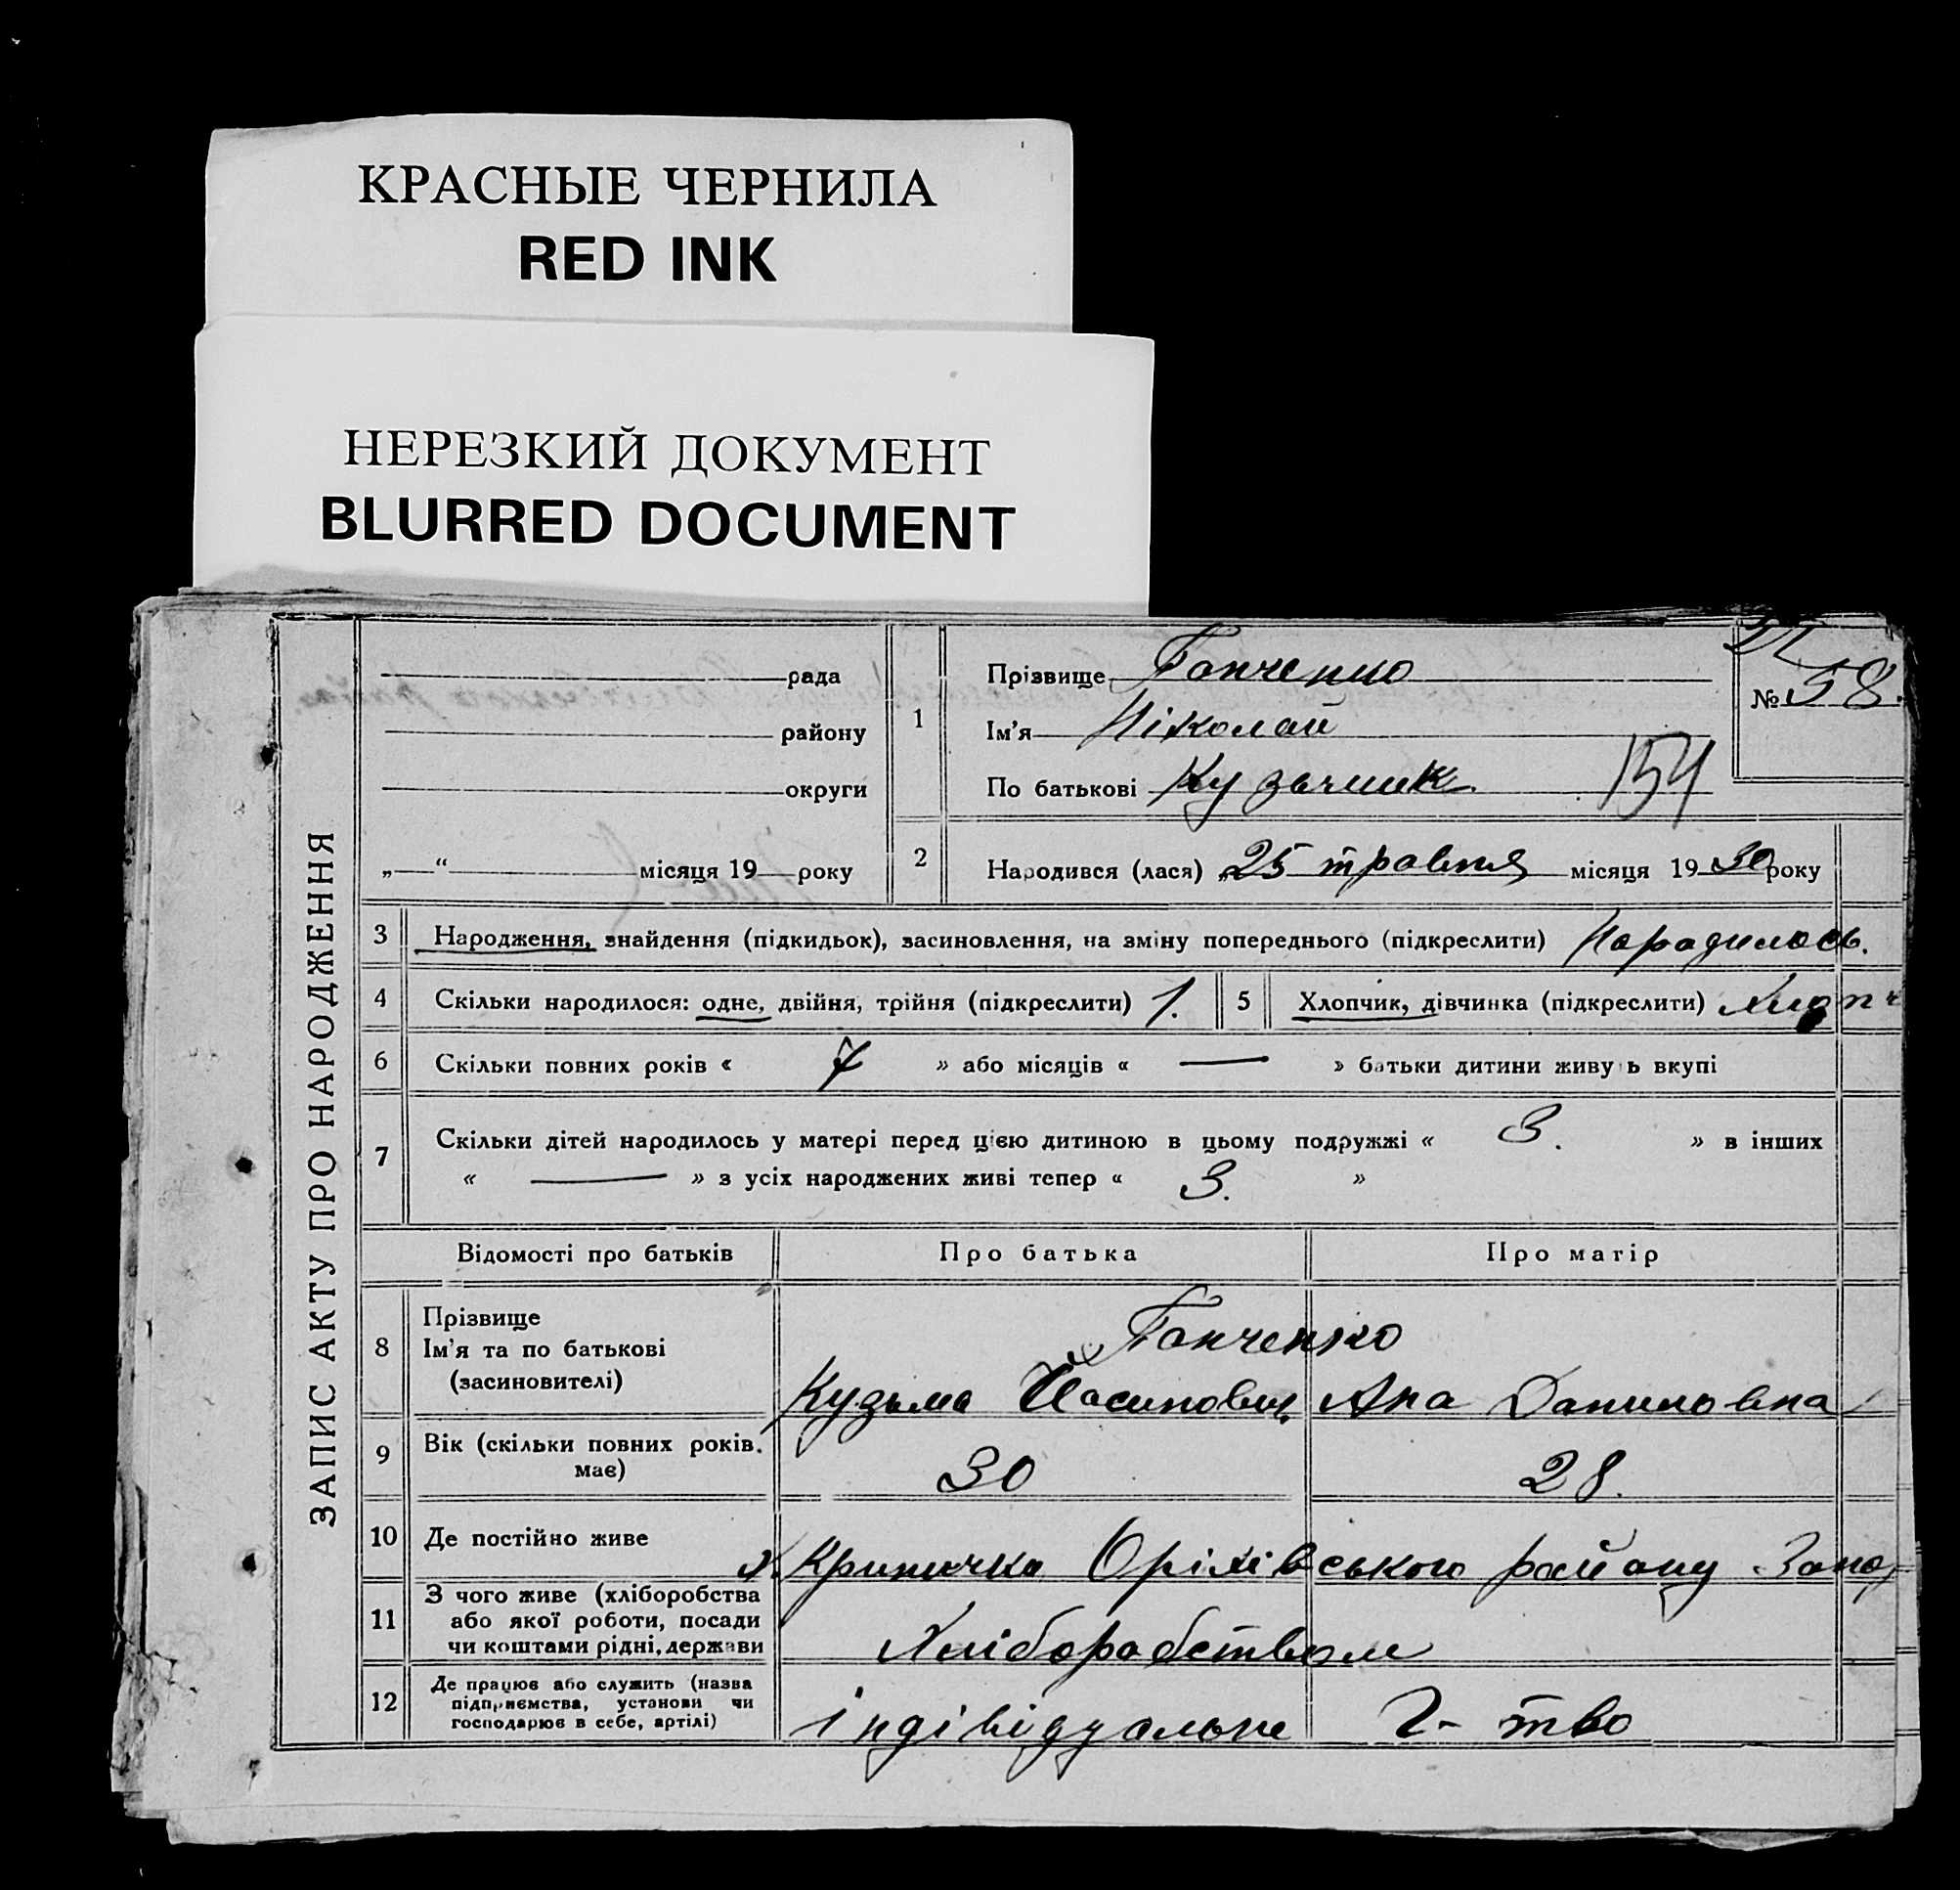 КРАСНЫЕ ЧЕРНИЛА
RED INK
НЕРЕЗКИЙ ДОКУМЕНТ
BLURRED DOCUMENT
ЗАПИС АКТУ ПРО НАРОДЖЕННЯ
рада
району
округи
„ “ місяця 19 року
1
Прізвище Ганченко
Ім'я Ніколай
По батькові
154
№ 58.
2
Народився (лася) „25 травня місяця 1930 року
3 Народження, знайдення (підкидьок), засиновлення, на зміну попереднього (підкреслити) Народилось.
4 Скільки народилося: одне, двійня, трійня (підкреслити) 1.
5 Хлопчик, дівчинка (підкреслити) Хлопч
6 Скільки повних років « 7 » або місяців « — » батьки дитини живуть вкупі
7 Скільки дітей народилось у матері перед цією дитиною в цьому подружжі « 3. » в інших
« — » з усіх народжених живі тепер « 3. »
Відомості про батьків Про батька Про матір
8 Прізвище
Ім'я та по батькові
(засиновителі)
Ганченко
Кузьма Ана Даниловна
9 Вік (скільки повних років. має) 30 28.
10 Де постійно живе х. Криничка Оріхівського району Запор
11 З чого живе (хліборобства
або якої роботи, посади
чи коштами рідні, держави
Хліборабством
12 Де працює або служить (назва
підприємства, установи чи
господарює в себе, артілі)
індівідуальне г-тво